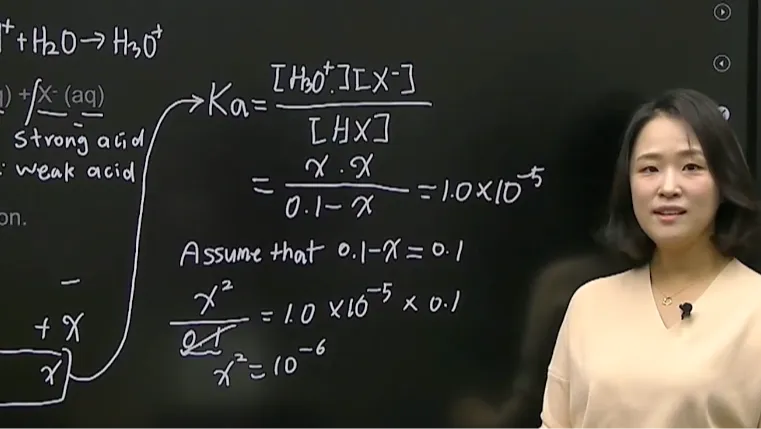 + + H2O → H3O+
) + X- (aq)
strong acid
: weak acid
on.
−
+ x
x
Ka = [H3O+][X-] / [HX]
= x · x / 0.1 − x = 1.0 × 10^-5
Assume that 0.1 − x = 0.1
x² / 0.1 = 1.0 × 10^-5 × 0.1
x² = 10^-6